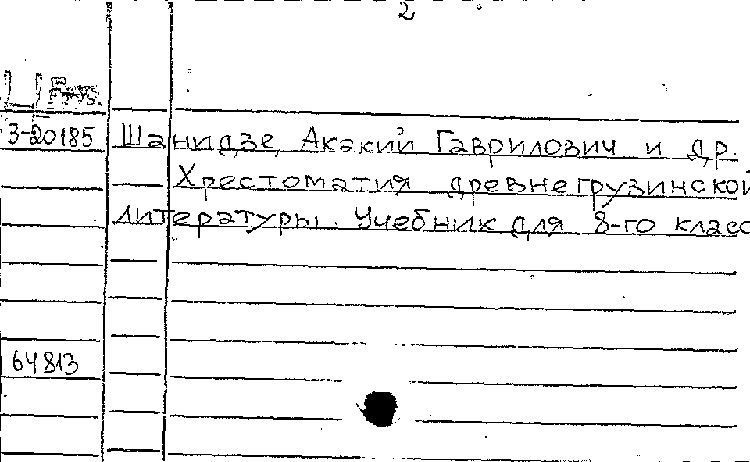 2
3-20185 Шанидзе, Акакий Гаврилович и др.
Хрестоматия древнегрузинской
литературы. Учебник для 8-го класс
64813